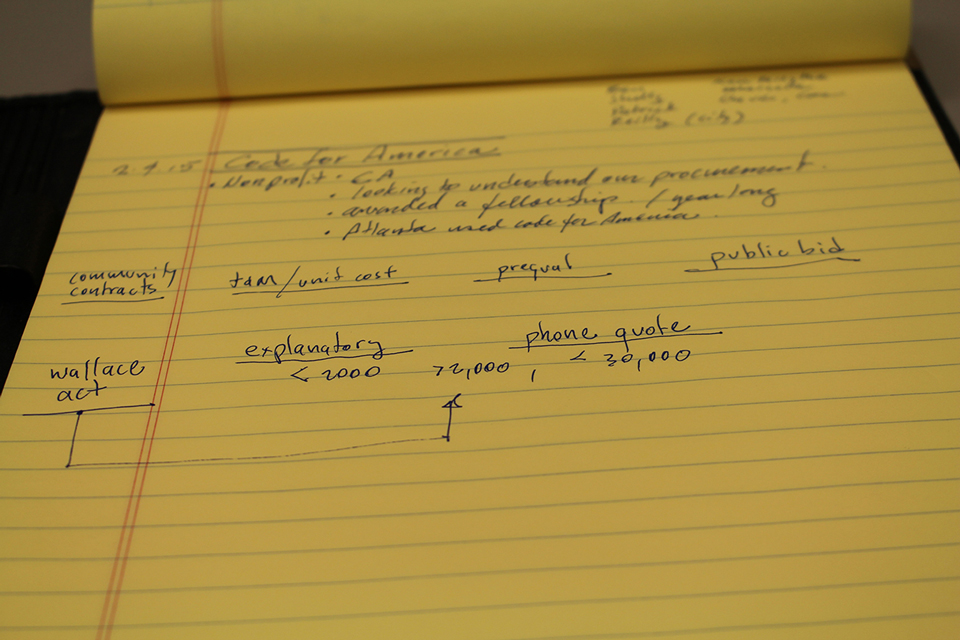 Patrick
Reilly (city)
2.4.15 Code for America
• Nonprofit • CA
• looking to understand our procurement.
• awarded a fellowship. / year long
• Atlanta used code for America.
community contracts
t&m/unit cost
prequal
public bid
explanatory
< 2000
phone quote
>2,000 , < 30,000
wallace
act